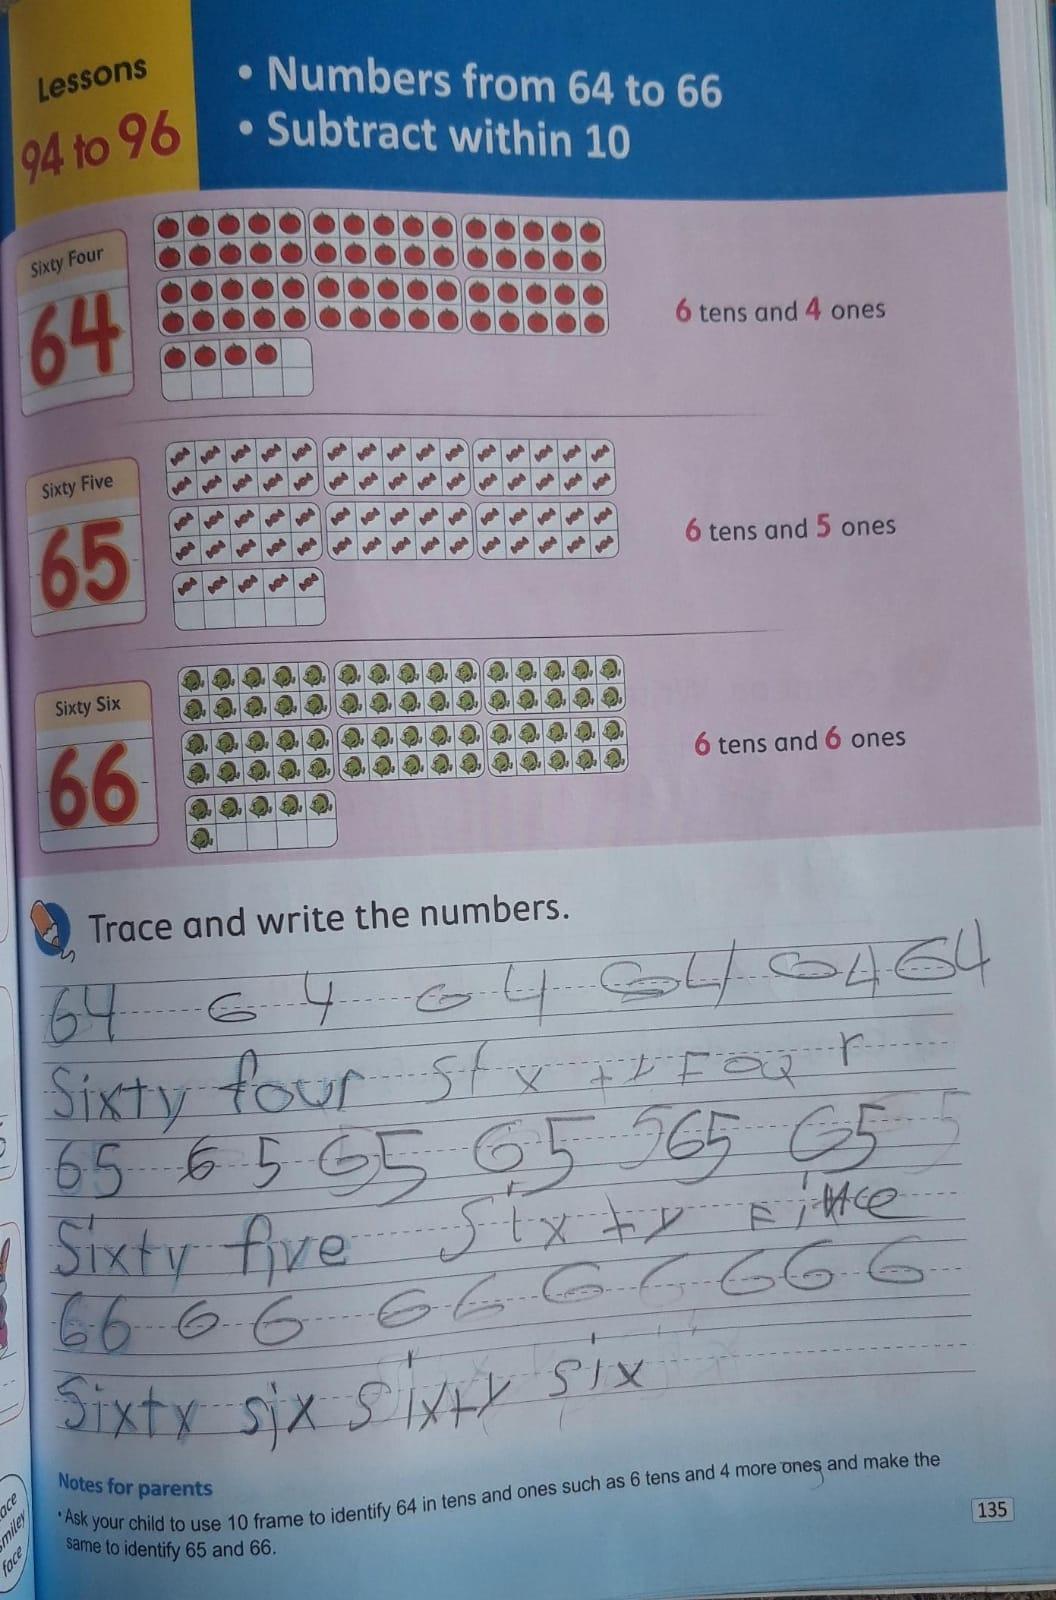 Lessons
94 to 96
• Numbers from 64 to 66
• Subtract within 10
Sixty Four
64
6 tens and 4 ones
Sixty Five
65
6 tens and 5 ones
Sixty Six
66
6 tens and 6 ones
Trace and write the numbers.
64 64 64 64 64 64
Sixty four six ty Four
65 65 65 65 565 65
Sixty five Six ty
66 66 66 66 666 6
Sixty six Sixty six
Notes for parents
• Ask your child to use 10 frame to identify 64 in tens and ones such as 6 tens and 4 more ones and make the
same to identify 65 and 66.
135
smiley
face